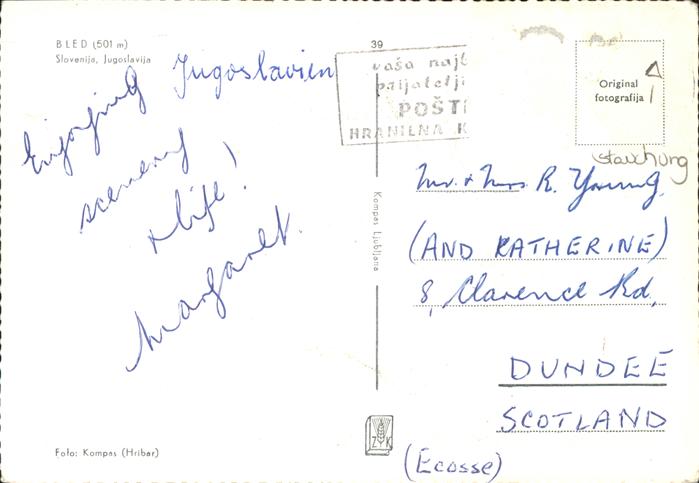 BLED (501 m)
Slovenija, Jugoslavija
Enjoying Jugoslavien
scenery
& life!
Margaret.
Foto: Kompas (Hribar)
39
vaša najb
prijatelji
POŠTN
HRANILNA K
Kompas Ljubljana
ZK
Original
fotografija
Mr. & Mrs R. Young.
(AND KATHERINE)
8, Clarence Rd,
DUNDEE
SCOTLAND
(Ecosse)